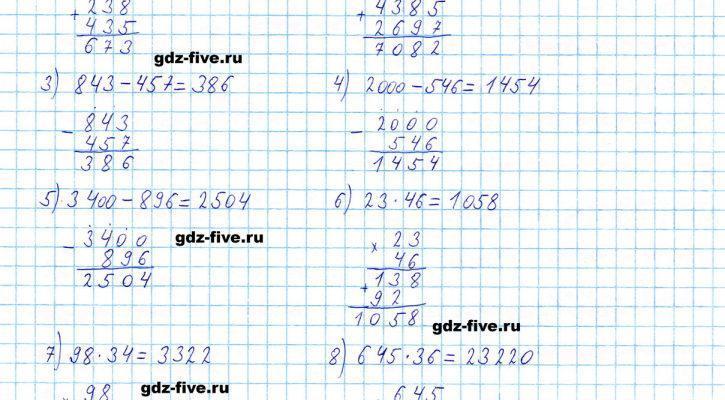 + 238
435
673
+ 4385
2697
7082
gdz-five.ru
3) 843-457=386
- 843
457
386
4) 2000-546=1454
- 2000
546
1454
5) 3400-896=2504
- 3400
896
2504
gdz-five.ru
6) 23·46=1058
× 23
46
+ 138
92
1058
gdz-five.ru
7) 98·34=3322
× 98
gdz-five.ru
8) 645·36=23220
645